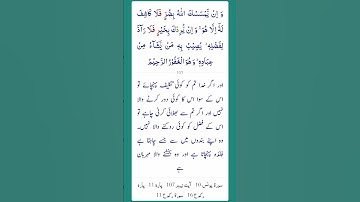 وَ اِنۡ یَّمۡسَسۡکَ اللّٰہُ بِضُرٍّ فَلَا کَاشِفَ
لَہٗۤ اِلَّا ہُوَ ۚ وَ اِنۡ یُّرِدۡکَ بِخَیۡرٍ فَلَا رَآدَّ
لِفَضۡلِہٖ ؕ یُصِیۡبُ بِہٖ مَنۡ یَّشَآءُ مِنۡ
عِبَادِہٖ ؕ وَ ہُوَ الۡغَفُوۡرُ الرَّحِیۡمُ
107
اور اگر خدا تم کو کوئی تکلیف پہنچائے تو
اس کے سوا اس کا کوئی دور کرنے والا
نہیں اور اگر تم سے بھلائی کرنی چاہے تو
اس کے فضل کو کوئی روکنے والا نہیں۔
وہ اپنے بندوں میں سے جسے چاہتا ہے
فائدہ پہنچاتا ہے اور وہ بخشنے والا مہربان
ہے
سورۃ یونس 10 آیت نمبر 107 پارہ 11 پارہ
رکوع 16 سورۃ رکوع 11